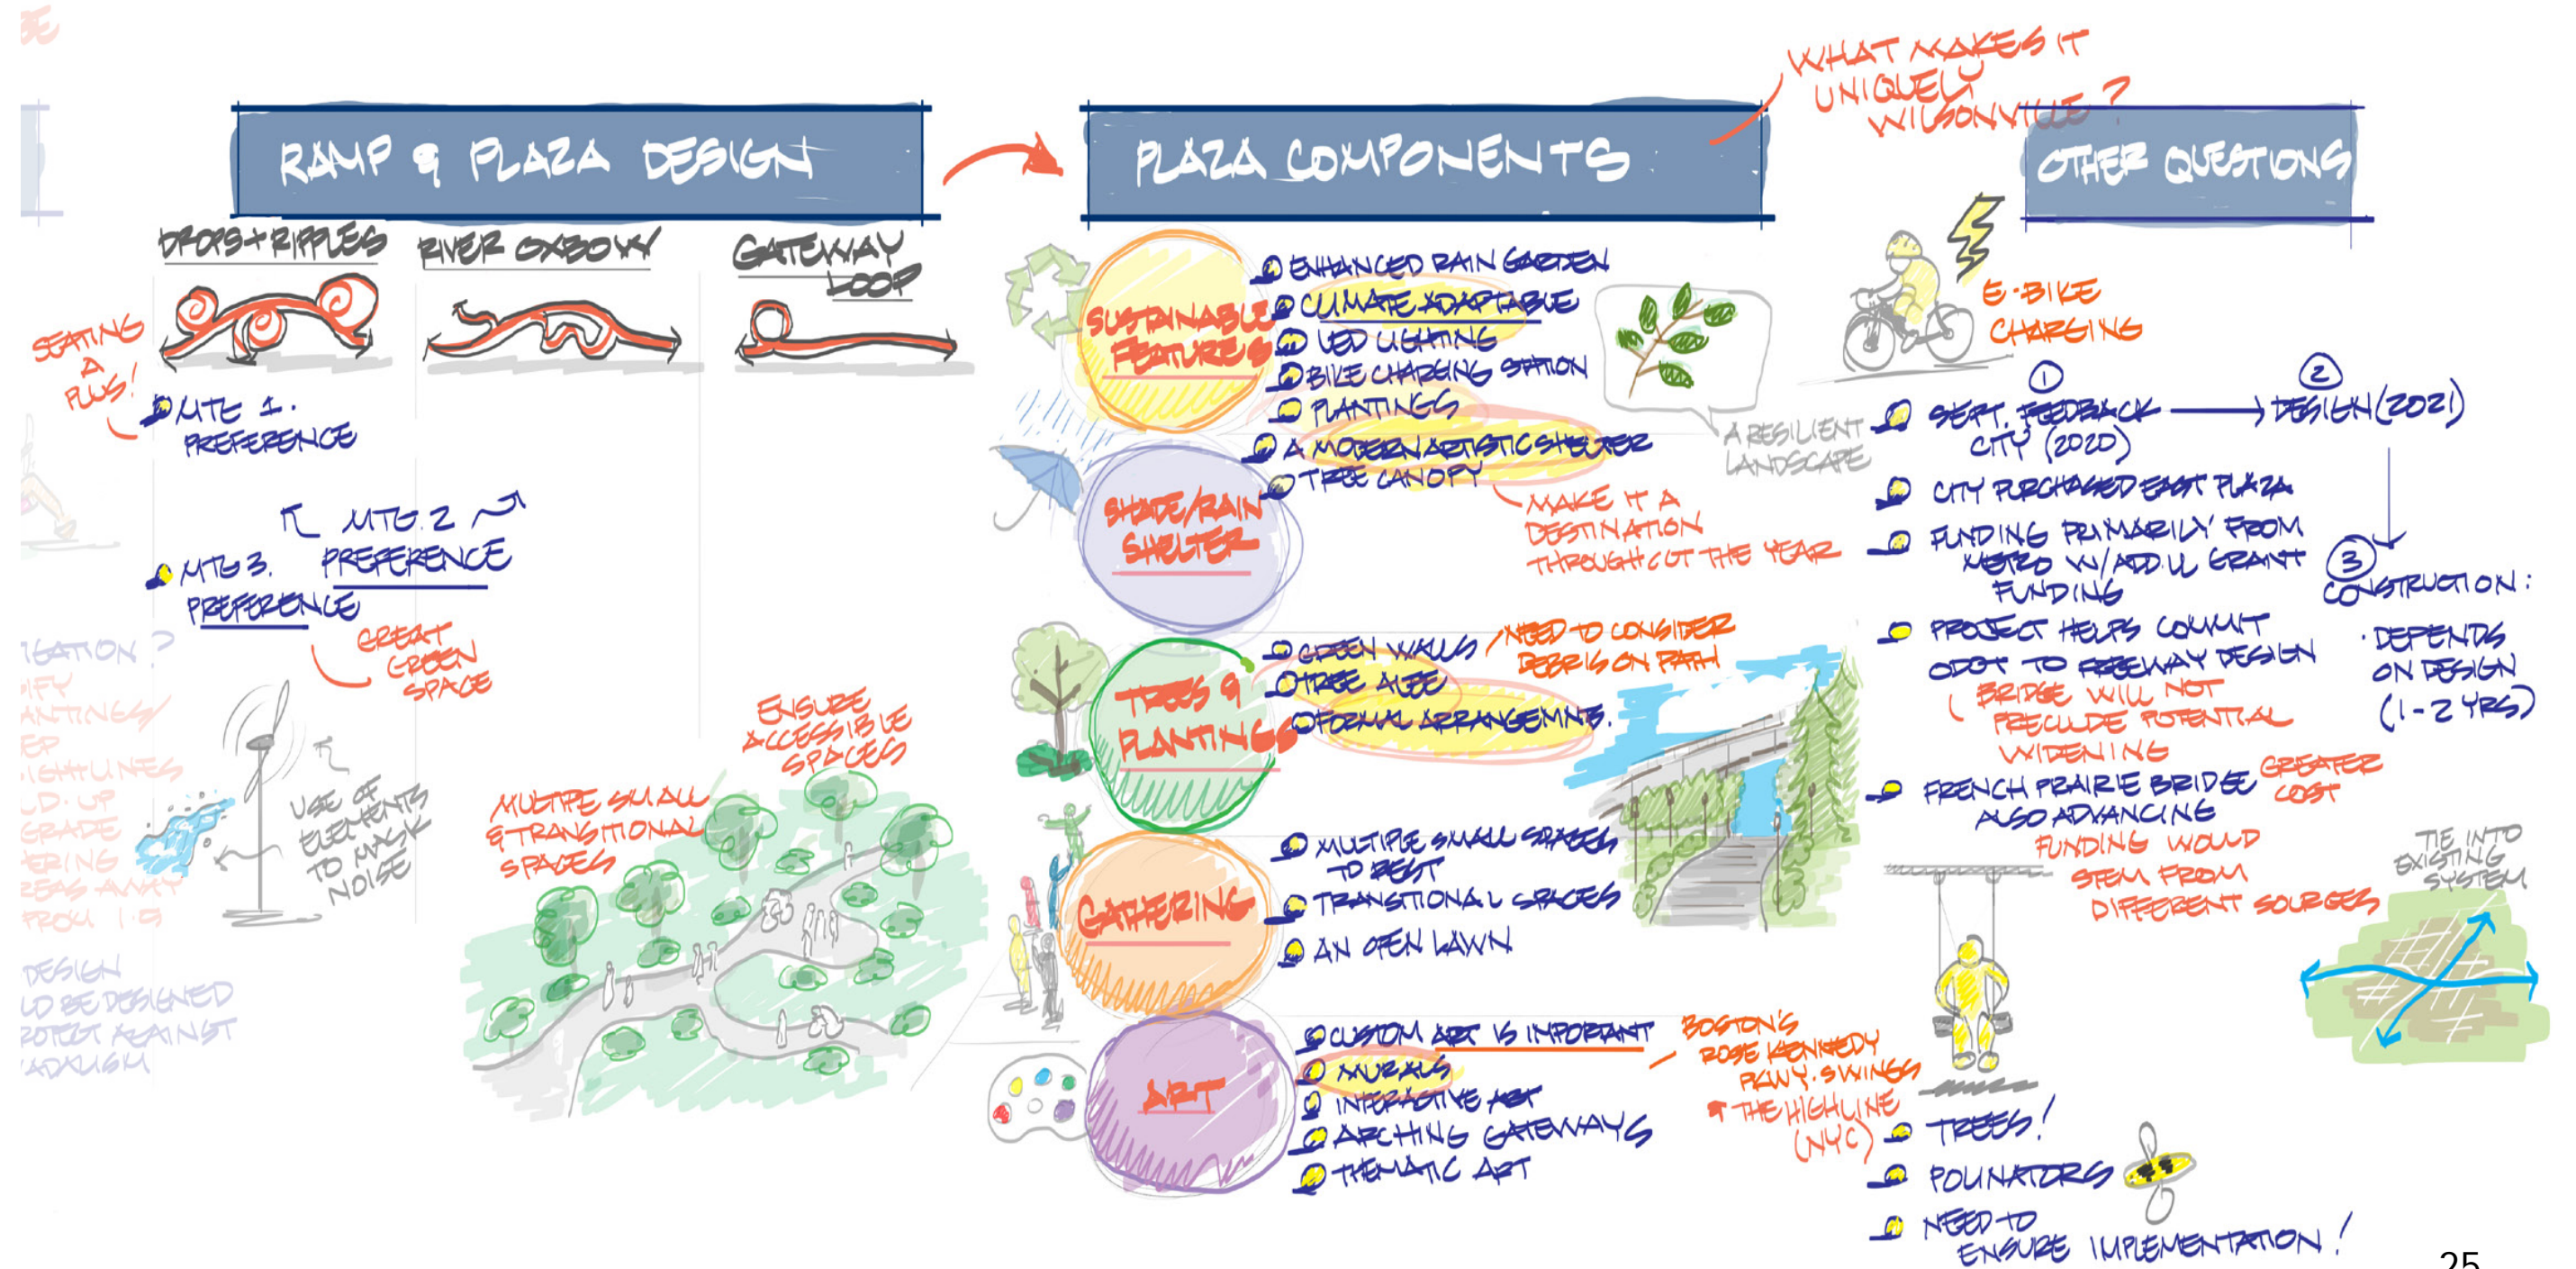 RAMP & PLAZA DESIGN
DROPS + RIPPLES
RIVER OXBOW
GATEWAY
LOOP
SEATING
A
PLUS!
MTG 1.
PREFERENCE
MTG. 2
PREFERENCE
MTG 3.
PREFERENCE
GREAT
GREEN
SPACE
USE OF
ELEMENTS
TO MASK
NOISE
MULTIPE SMALL
& TRANSITIONAL
SPACES
ENSURE
ACCESSIBLE
SPACES
DESIGN
BE DESIGNED
AGAINST
FROM I-5
PLAZA COMPONENTS
WHAT MAKES IT
UNIQUELY
WILSONVILLE?
SUSTAINABLE
FEATURES
ENHANCED RAIN GARDEN
CLIMATE ADAPTABLE
LED LIGHTING
BIKE CHARGING STATION
PLANTINGS
A RESILIENT
LANDSCAPE
SHADE/RAIN
SHELTER
A MODERN ARTISTIC SHELTER
TREE CANOPY
MAKE IT A
DESTINATION
THROUGHOUT THE YEAR
TREES &
PLANTINGS
GREEN WALLS
TREE ALEE
FORMAL ARRANGEMNTS.
NEED TO CONSIDER
DEBRIS ON PATH
GATHERING
MULTIPLE SMALL SPACES
TO REST
TRANSITIONAL SPACES
AN OPEN LAWN
ART
CUSTOM ART IS IMPORTANT
MURALS
INTERACTIVE ART
ARCHING GATEWAYS
THEMATIC ART
BOSTON'S
ROSE KENNEDY
PKWY. SWINGS
THE HIGHLINE
(NYC)
OTHER QUESTIONS
E-BIKE
CHARGING
1
SEPT. FEEDBACK
CITY (2020)
2
DESIGN (2021)
3
CONSTRUCTION:
DEPENDS
ON DESIGN
(1-2 YRS)
CITY PURCHASED EAST PLAZA
FUNDING PRIMARILY FROM
METRO W/ADD'LL GRANT
FUNDING
PROJECT HELPS COMMIT
ODOT TO FREEWAY DESIGN
BRIDGE WILL NOT
PRECLUDE POTENTIAL
WIDENING
FRENCH PRAIRIE BRIDGE
ALSO ADVANCING
GREATER
COST
FUNDING WOULD
STEM FROM
DIFFERENT SOURCES
TIE INTO
EXISTING
SYSTEM
TREES!
POLINATORS
NEED TO
ENSURE IMPLEMENTATION!
25